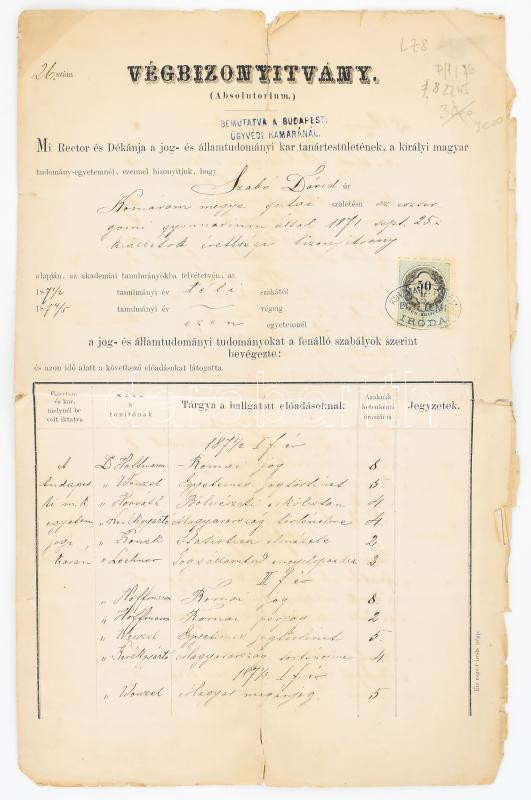 26. szám
VÉGBIZONYITVÁNY.
(Absolutorium.)
BEMUTATVA A BUDAPESTI
ÜGYVÉDI KAMARÁNÁL.
Mi Rector és Dékánja a jog- és államtudományi kar tanártestületének, a királyi magyar
tudomány-egyetemnél, ezennel bizonyitjuk, hogy
Szabó Dávid úr
Komárom megye születésü az eszter
gomi gymnasium által 1871 sept. 25-
kiállitott érettségi bizonyitvány
alapján, az akademiai tanulmányokba felvétetvén, az
1871/2 tanulmányi év téli szakától
1874/5 tanulmányi év végeig
ezen egyetemnél
IRODA
a jog- és államtudományi tudományokat a fenálló szabályok szerint
bevégezte:
és azon idő alatt a következő előadásokat látogatta.
Egyetem és kar, melynél be volt iktatva
a tanitónak
Tárgya a hallgatott előadásoknak
Azoknak hetenkénti óraszáma
Jegyzetek.
1871/2 I f. év
A Dr Hoffmann Római jog 8
budapesti „ Wenzel Egyetemes jogtörténet 5
kir. m. k. „ Horváth 4
egyetem „ Magyarország történelme 4
jogi „ Konek Statistica elmélete 2
karán „ Lechner encyclopaedia 2
II f. év
„ Hoffmann Római jog 8
„ Hoffmann Római perjog 2
„ Wenzel Egyetemes jogtörténet 5
„ Kerékgyártó Magyarország történelme 4
I f. év
„ Wenzel Magyar magánjog 5